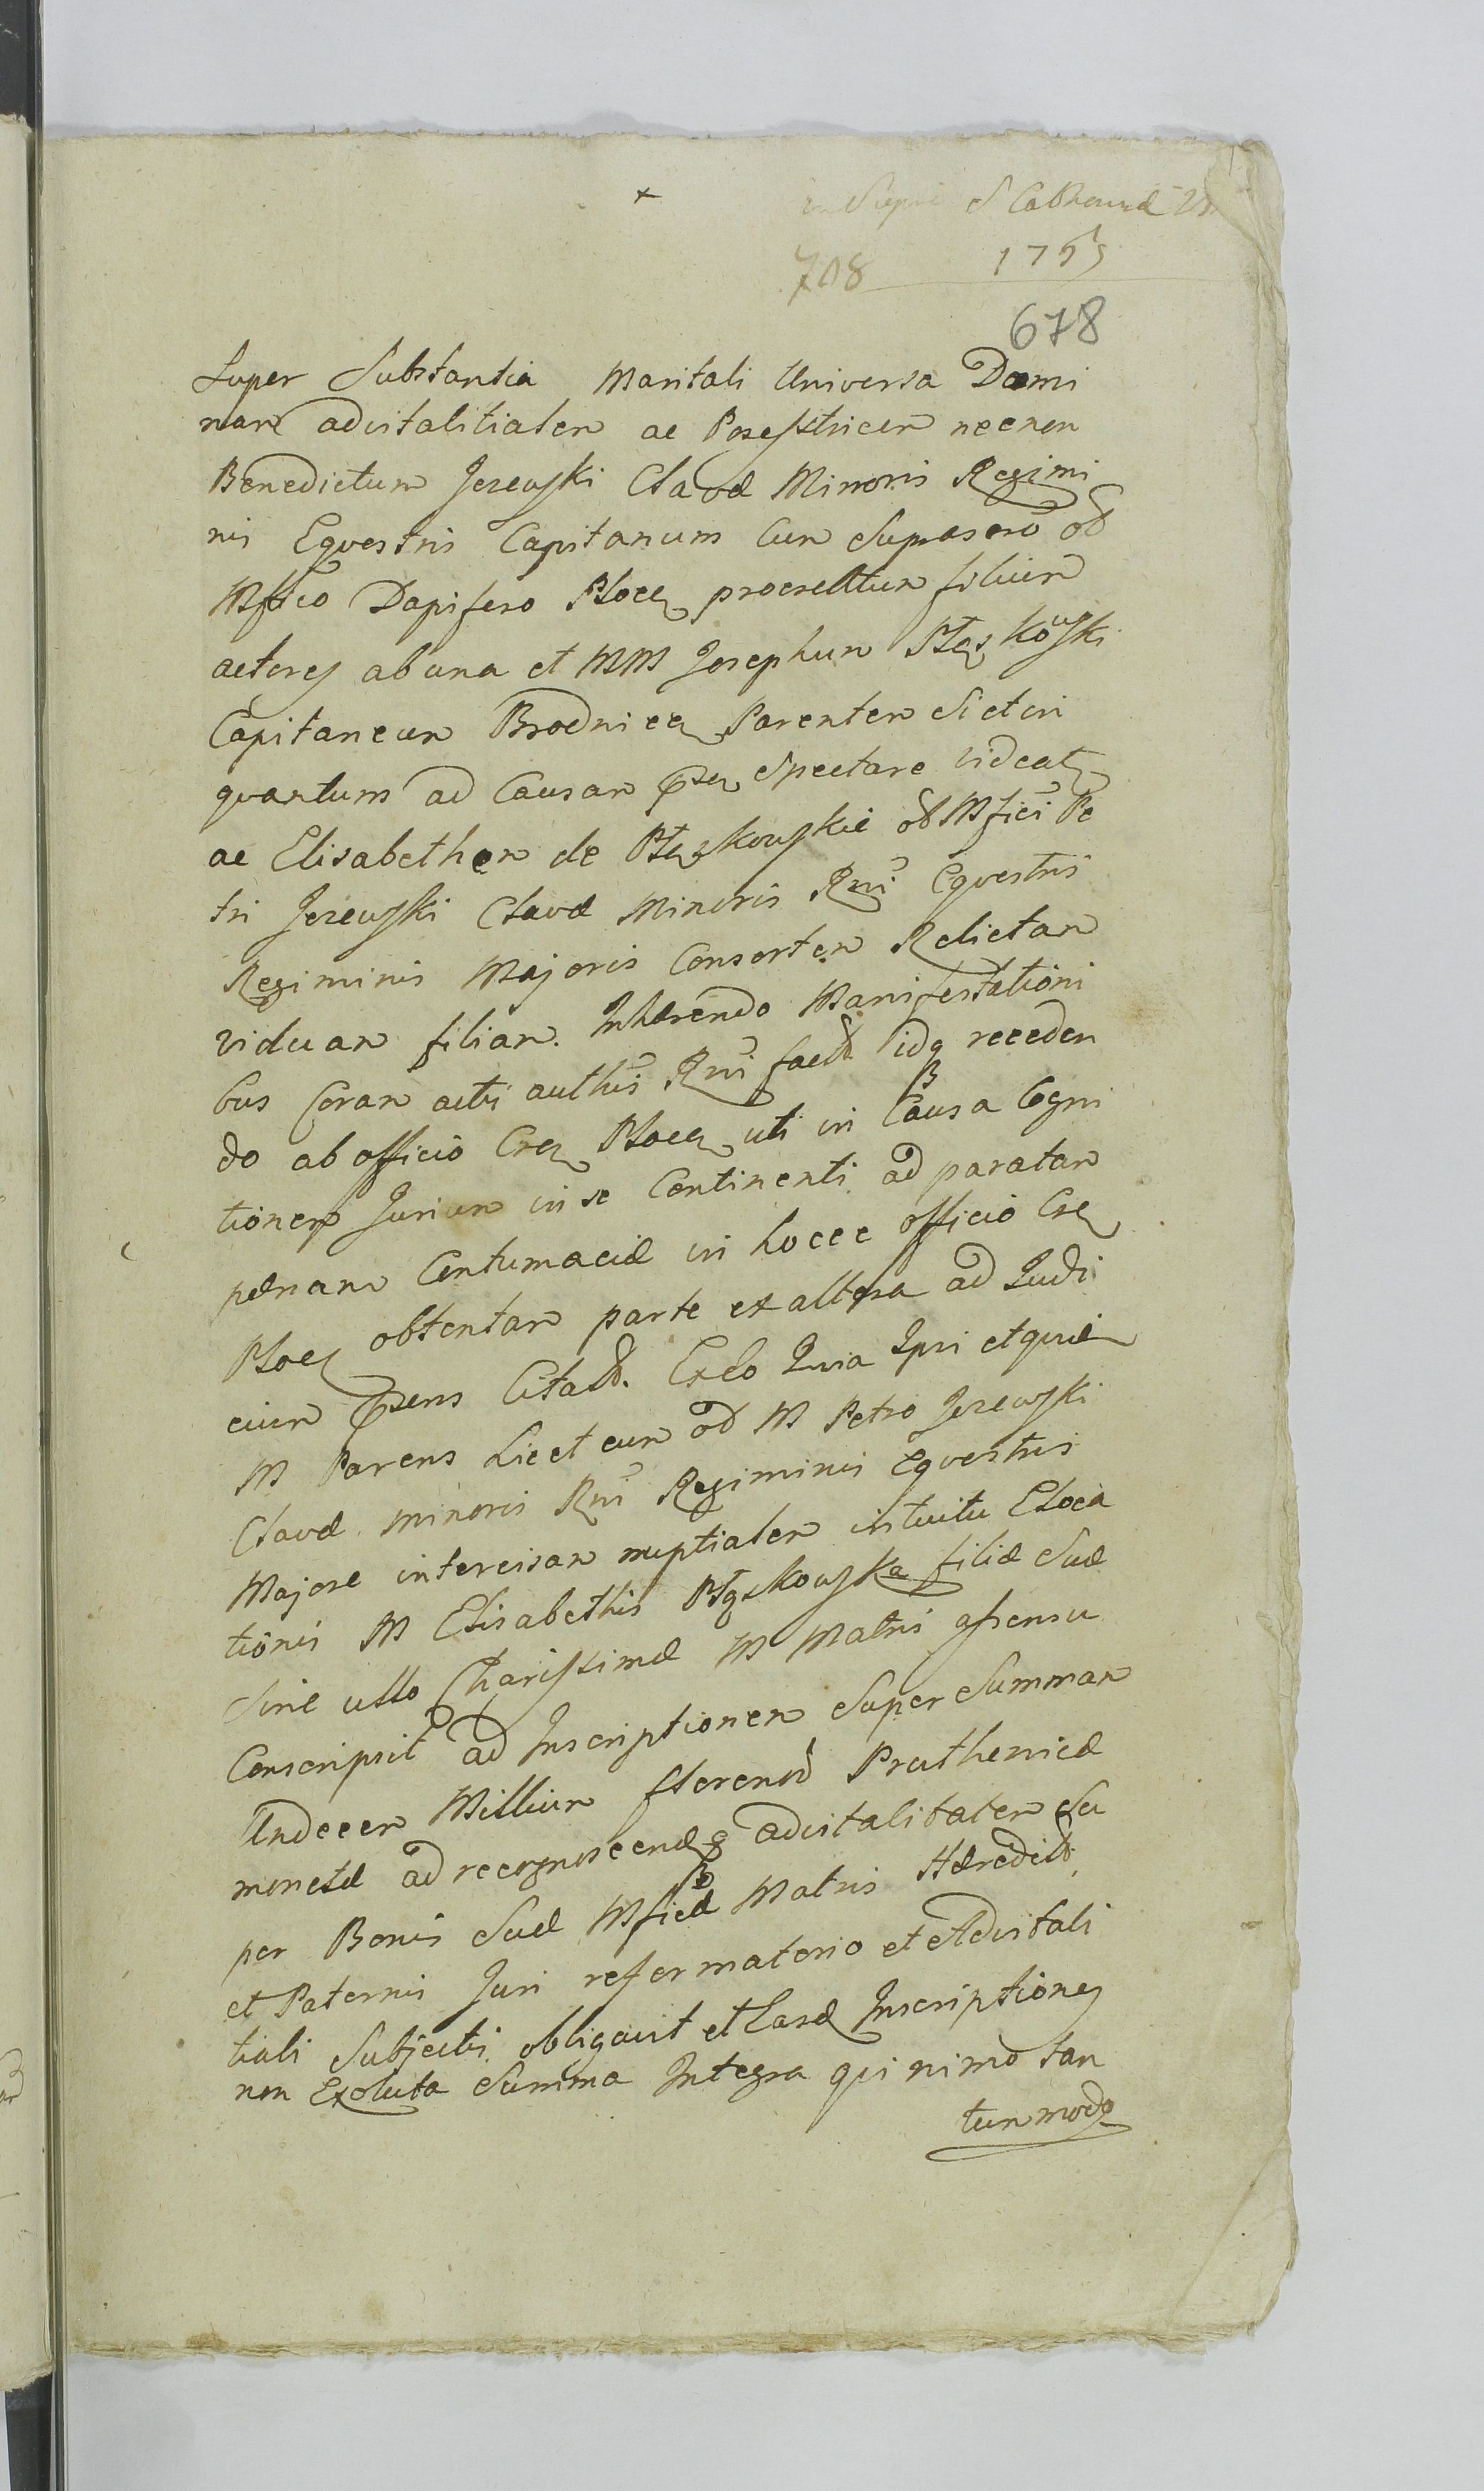 S Catharinæ
708 1765
678
Super Substantia Maritali Universa Domi
nam advitalitialem ac Possessricem necnon
Benedictum Jezewski Clavæ Minoris Regimi
nis Eqvestris Capitanum cum Suprascro olim
Mfico Dapifero Plocen procreatum filium
actores ab una et MM Josephum Pląskowski
Capitaneum Brodnicen Parentem Si et in
qvantum ad Causam Spectare videatur
ac Elisabetham de Pląskowskie olim Mfici Pe
tri Jezewski Clavæ Minoris Rni Eqvestris
Regiminis Majoris Consortem Relictam
viduam filiam. Inhærendo Manifestationi
bus Coram actis authis Rni fact idq receden
do ab officio Cren Plocen uti in Causa Cogni
tionem Jurium in se Continenti ad paratam
pænam Contumaciæ in hocce officio Cren
Plocen obtentam parte ex altera ad Judi
cium Citat. Exlo Qvia Ipsi et qvidem
M Parens Licet cum olim M Petro Jezewski
Clavæ minoris Rni Regiminis Eqvestris
Majore intercisam nuptialem intuitu Eloca
tionis M Elisabethis Pląskowska filiæ Suæ
Sine ullo Charissimæ M Matris assensu
Conscripsit ad Inscriptionem Super Summam
Undecem Millium flrenor Pruthenicæ
monetæ ad recognoscend advitalitatem Su
per Bonis Suæ Mficæ Matris Hæredit
et Paternis Juri reformatorio et Advitali
tiali Subjectis obligavit et Easd Inscriptiones
non Exoluta Summa Integra qvinimo tan
tummodo